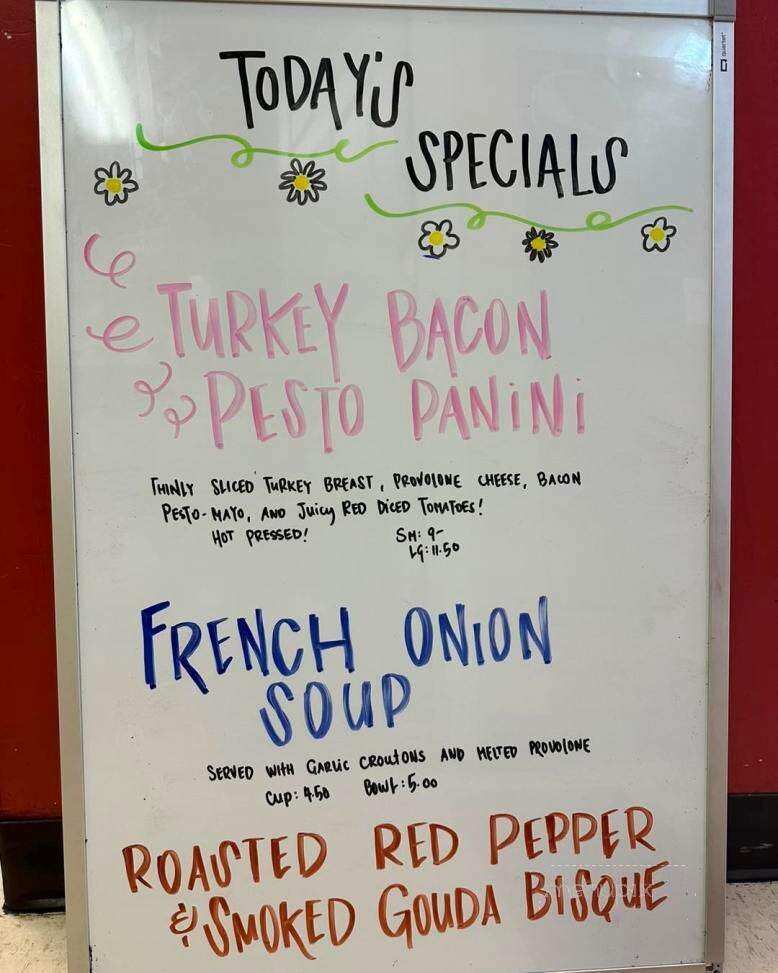 TODAY'S
SPECIALS
TURKEY BACON
PESTO PANINI
THINLY SLICED TURKEY BREAST, PROVOLONE CHEESE, BACON
PESTO-MAYO, AND JUICY RED DICED TOMATOES!
HOT PRESSED! SM: 9-
LG: 11.50
FRENCH ONION
SOUP
SERVED WITH GARLIC CROUTONS AND MELTED PROVOLONE
CUP: 4.50 BOWL: 5.00
ROASTED RED PEPPER
& SMOKED GOUDA BISQUE